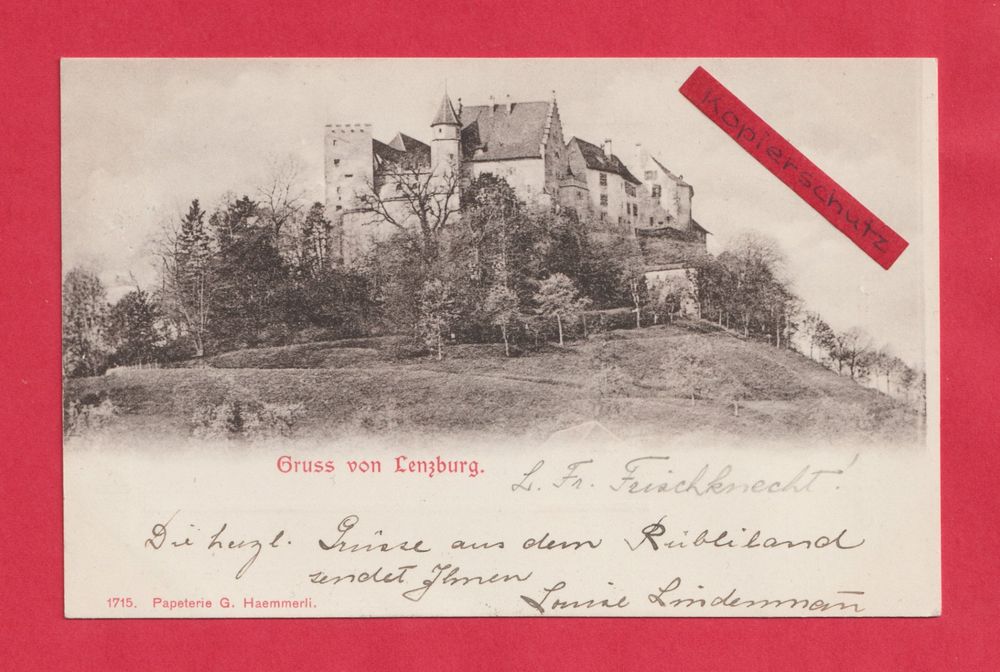 Kopierschutz
Gruss von Lenzburg.
L. Fr. Frischknecht!
Die herzl. Grüsse aus dem Rübliland
sendet Ihnen
Louise Lindenmann
1715. Papeterie G. Haemmerli.